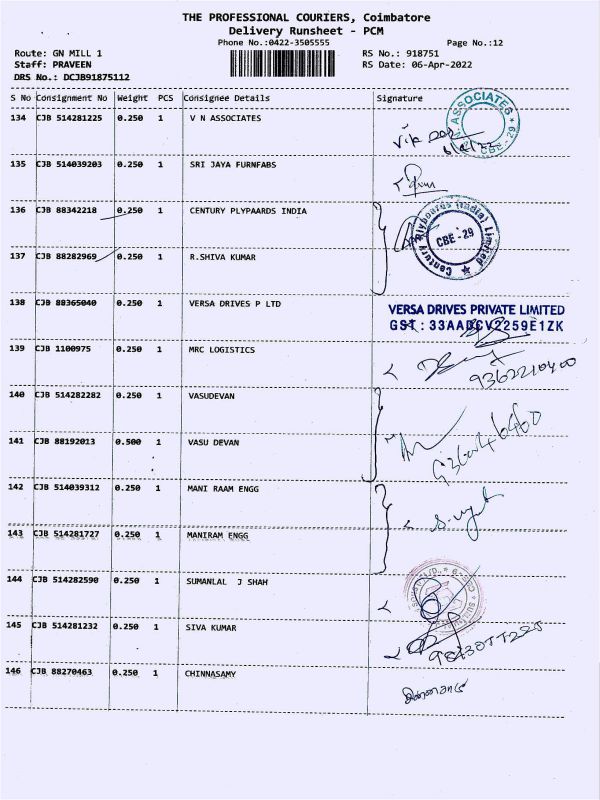 THE PROFESSIONAL COURIERS, Coimbatore
Delivery Runsheet - PCM
Phone No.:0422-3505555 Page No.:12
Route: GN MILL 1 RS No.: 918751
Staff: PRAVEEN RS Date: 06-Apr-2022
DRS No.: DCJB91875112
S No Consignment No Weight PCS Consignee Details Signature
134 CJB 514281225 0.250 1 V N ASSOCIATES
N. ASSOCIATES CBE - 29
135 CJB 514039203 0.250 1 SRI JAYA FURNFABS
136 CJB 88342218 0.250 1 CENTURY PLYPAARDS INDIA
Century Plyboards (India) Limited CBE - 29
137 CJB 88282969 0.250 1 R.SHIVA KUMAR
138 CJB 88365040 0.250 1 VERSA DRIVES P LTD
VERSA DRIVES PRIVATE LIMITED
GST : 33AADCV2259E1ZK
139 CJB 1100975 0.250 1 MRC LOGISTICS
9362210400
140 CJB 514282282 0.250 1 VASUDEVAN
141 CJB 88192013 0.500 1 VASU DEVAN
142 CJB 514039312 0.250 1 MANI RAAM ENGG
143 CJB 514281727 0.250 1 MANIRAM ENGG
144 CJB 514282590 0.250 1 SUMANLAL J SHAH
145 CJB 514281232 0.250 1 SIVA KUMAR
146 CJB 88270463 0.250 1 CHINNASAMY